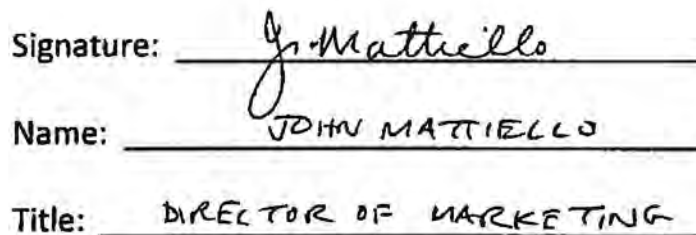 Signature: J. Mattiello
Name: JOHN MATTIELLO
Title: DIRECTOR OF MARKETING